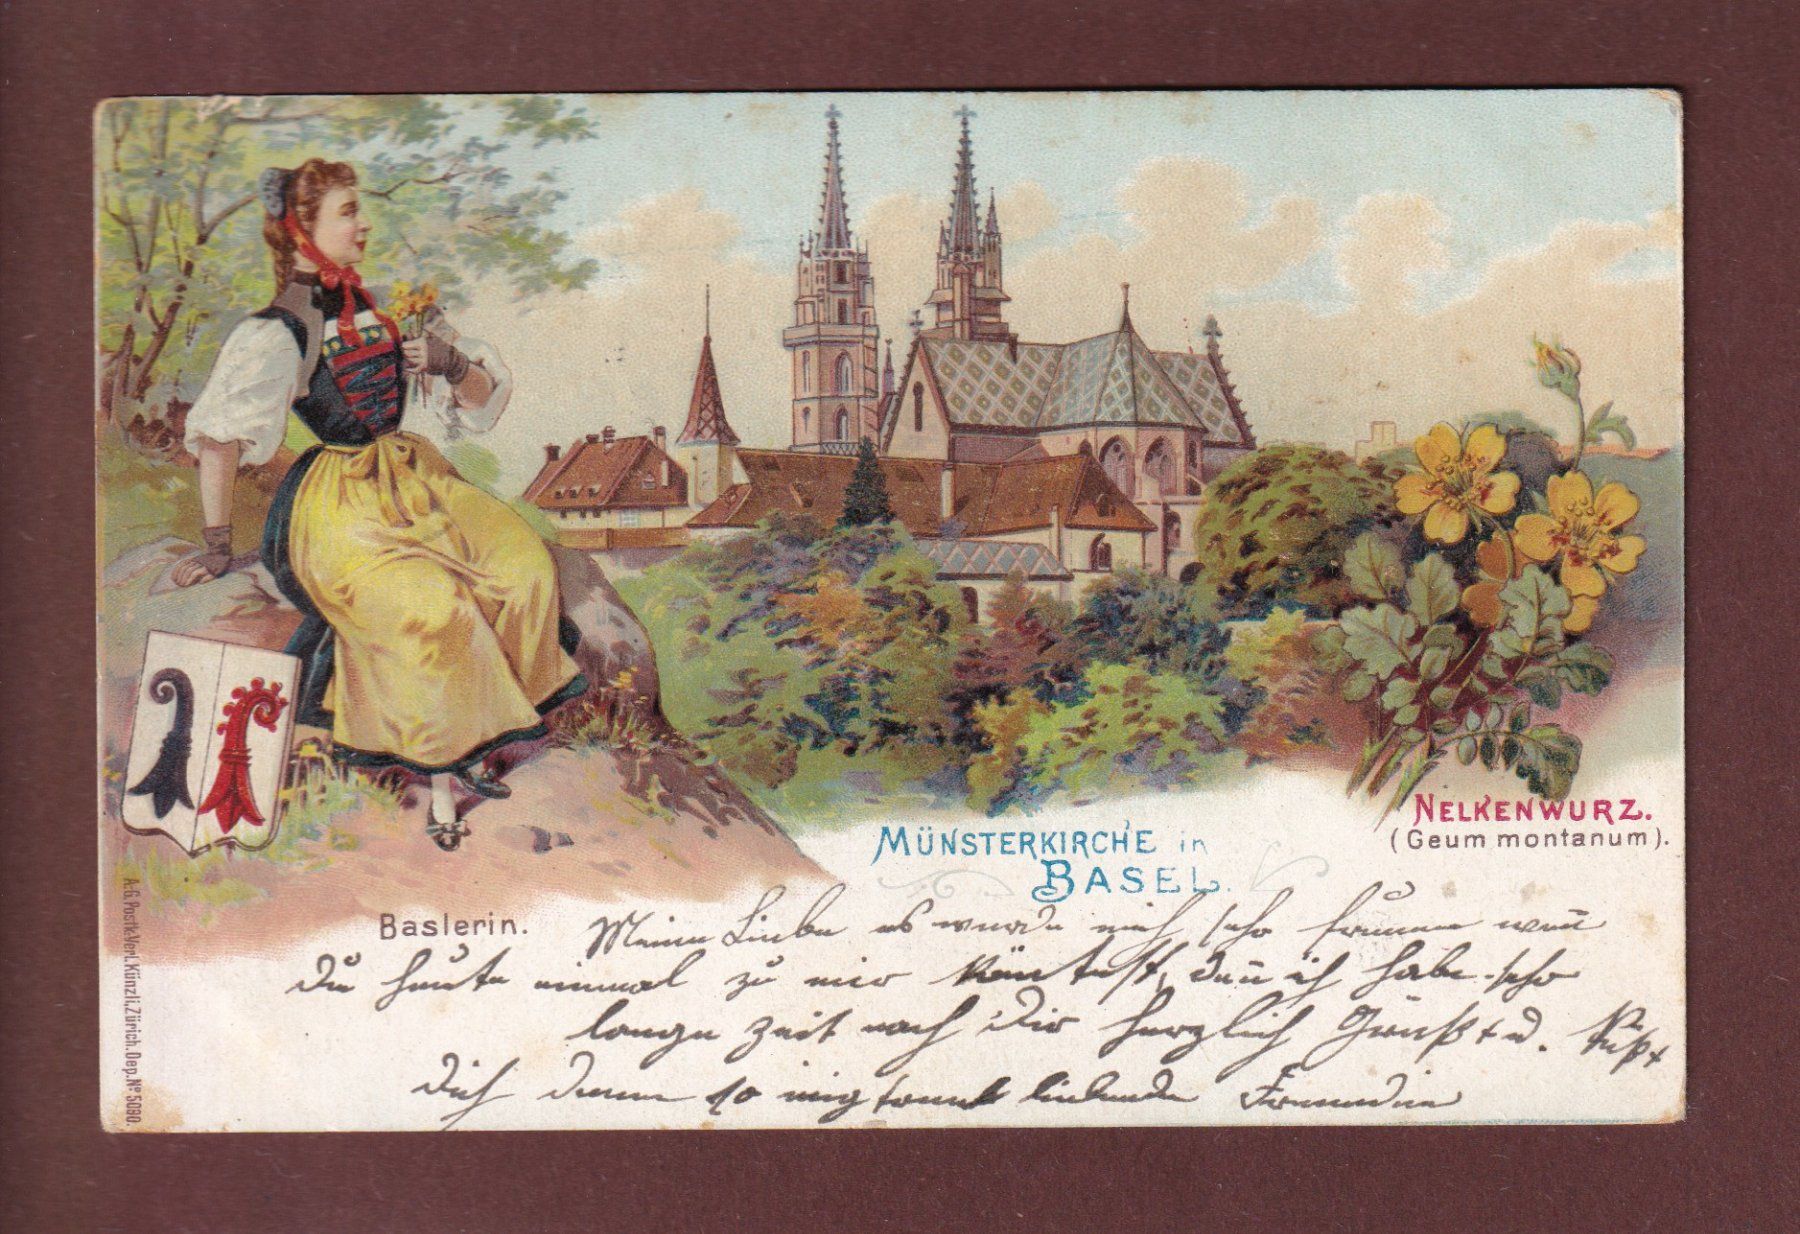 MÜNSTERKIRCHE in
BASEL.
NELKENWURZ.
(Geum montanum).
Baslerin.
A.-G. Postk.-Verl. Künzli, Zürich. Dep. Nº 5090.
Meine Liebe es wurde mich sehr freuen wen̄
Du heute einmal zu mir köntest, den̄ ich habe sehr
lange Zeit nach Dir herzlich Grüßt u. Küßt
Dich deine so liebende Freundin